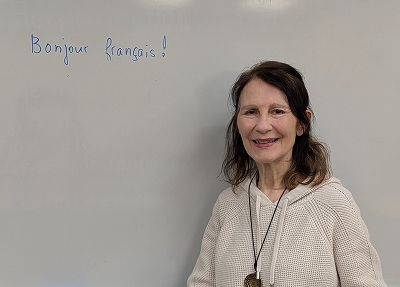 Bonjour français !